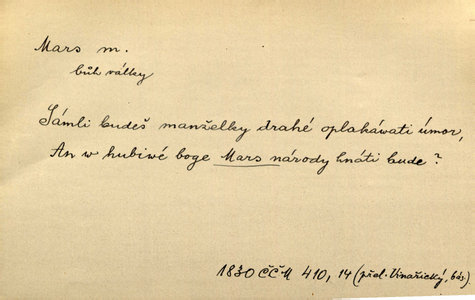 Mars m.
bůh války
Sámli budeš manželky drahé oplakáwati úmor,
An w hubiwé boge Mars národy hnáti bude?
1830 ČČM 410, 14 (přel. Vinařický, bás.)